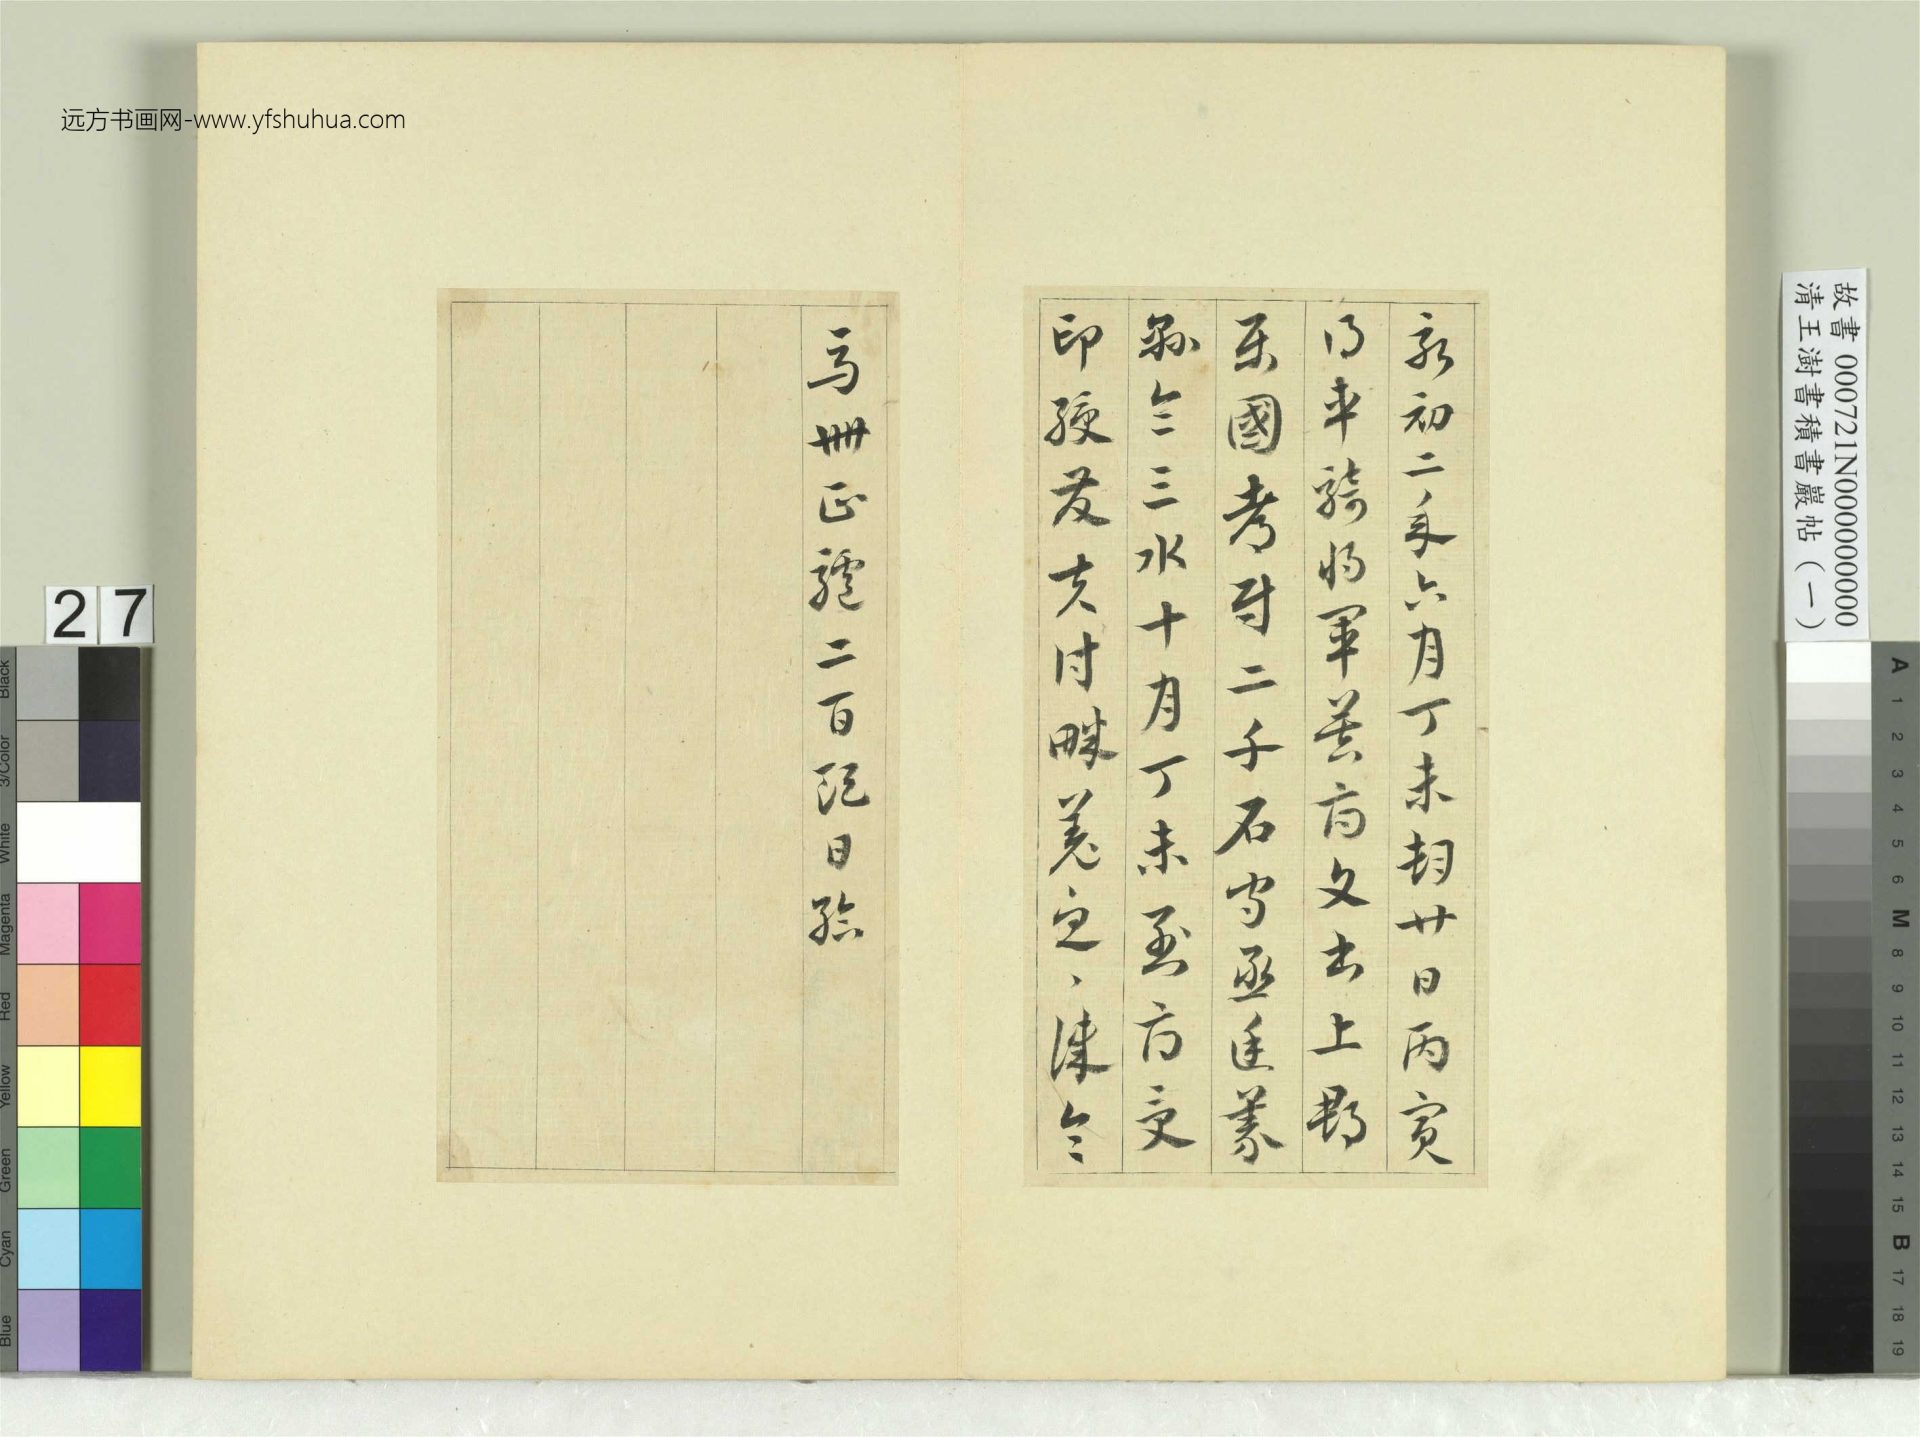 远方书画网-www.yfshuhua.com
故書 000721N000000000
清王澍書積書巖帖（一）
永初二年六月丁未朔廿日丙寅
得車騎將軍莫府文書上郡
屬國都尉二千石守丞廷義
縣令三水十月丁未到府受
印綬發夫討畔羌急〻律令
馬卌匹驢二百頭日給
27
Black
3/Color
White
Magenta
Red
Yellow
Green
Cyan
Blue
A
1
2
3
4
5
6
M
8
9
10
11
12
13
14
15
B
17
18
19